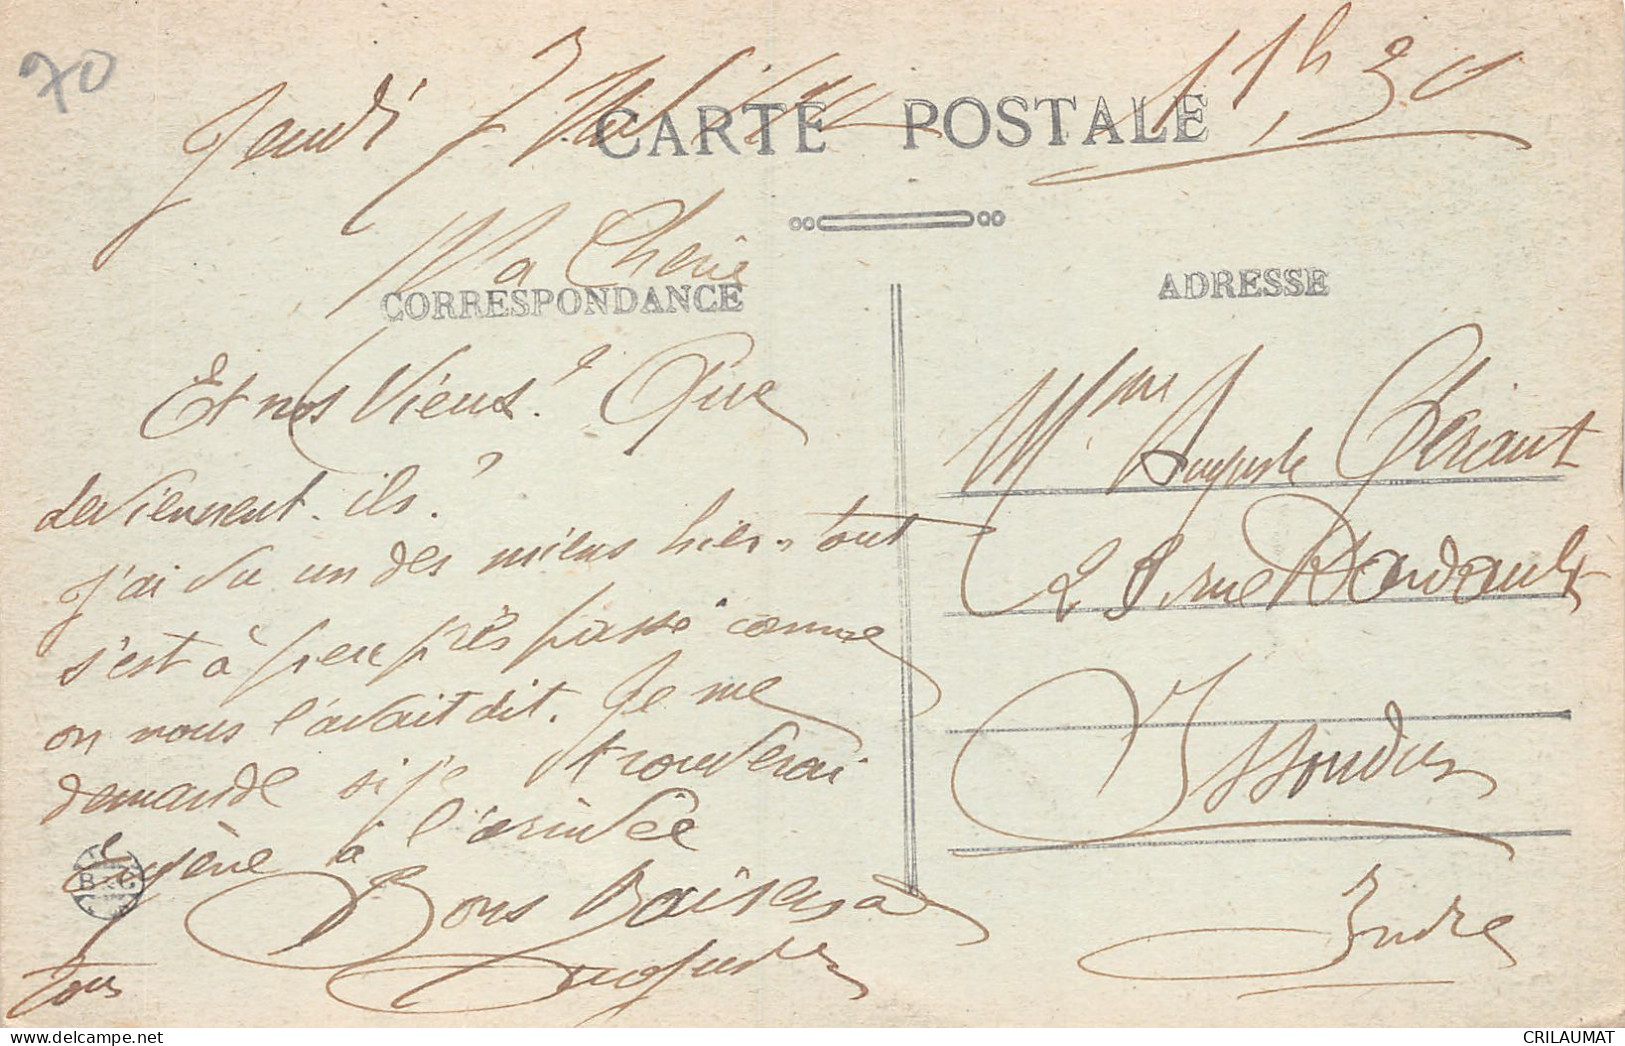 70
Jeudi 7 11h,30
CARTE POSTALE
Ma Cherie
CORRESPONDANCE
ADRESSE
Et nos Vieux? Que
deviennent-ils?
J'ai vu un des miens hier - tout
s'est à peu près passé comme
on nous l'avait dit. Je me
demande si je trouverai
Eugène à l'arrivée
Bons Baisers à
Tous
Auguste
B C
Mme Auguste
28 rue
Issoudun
Indre
CRILAUMAT